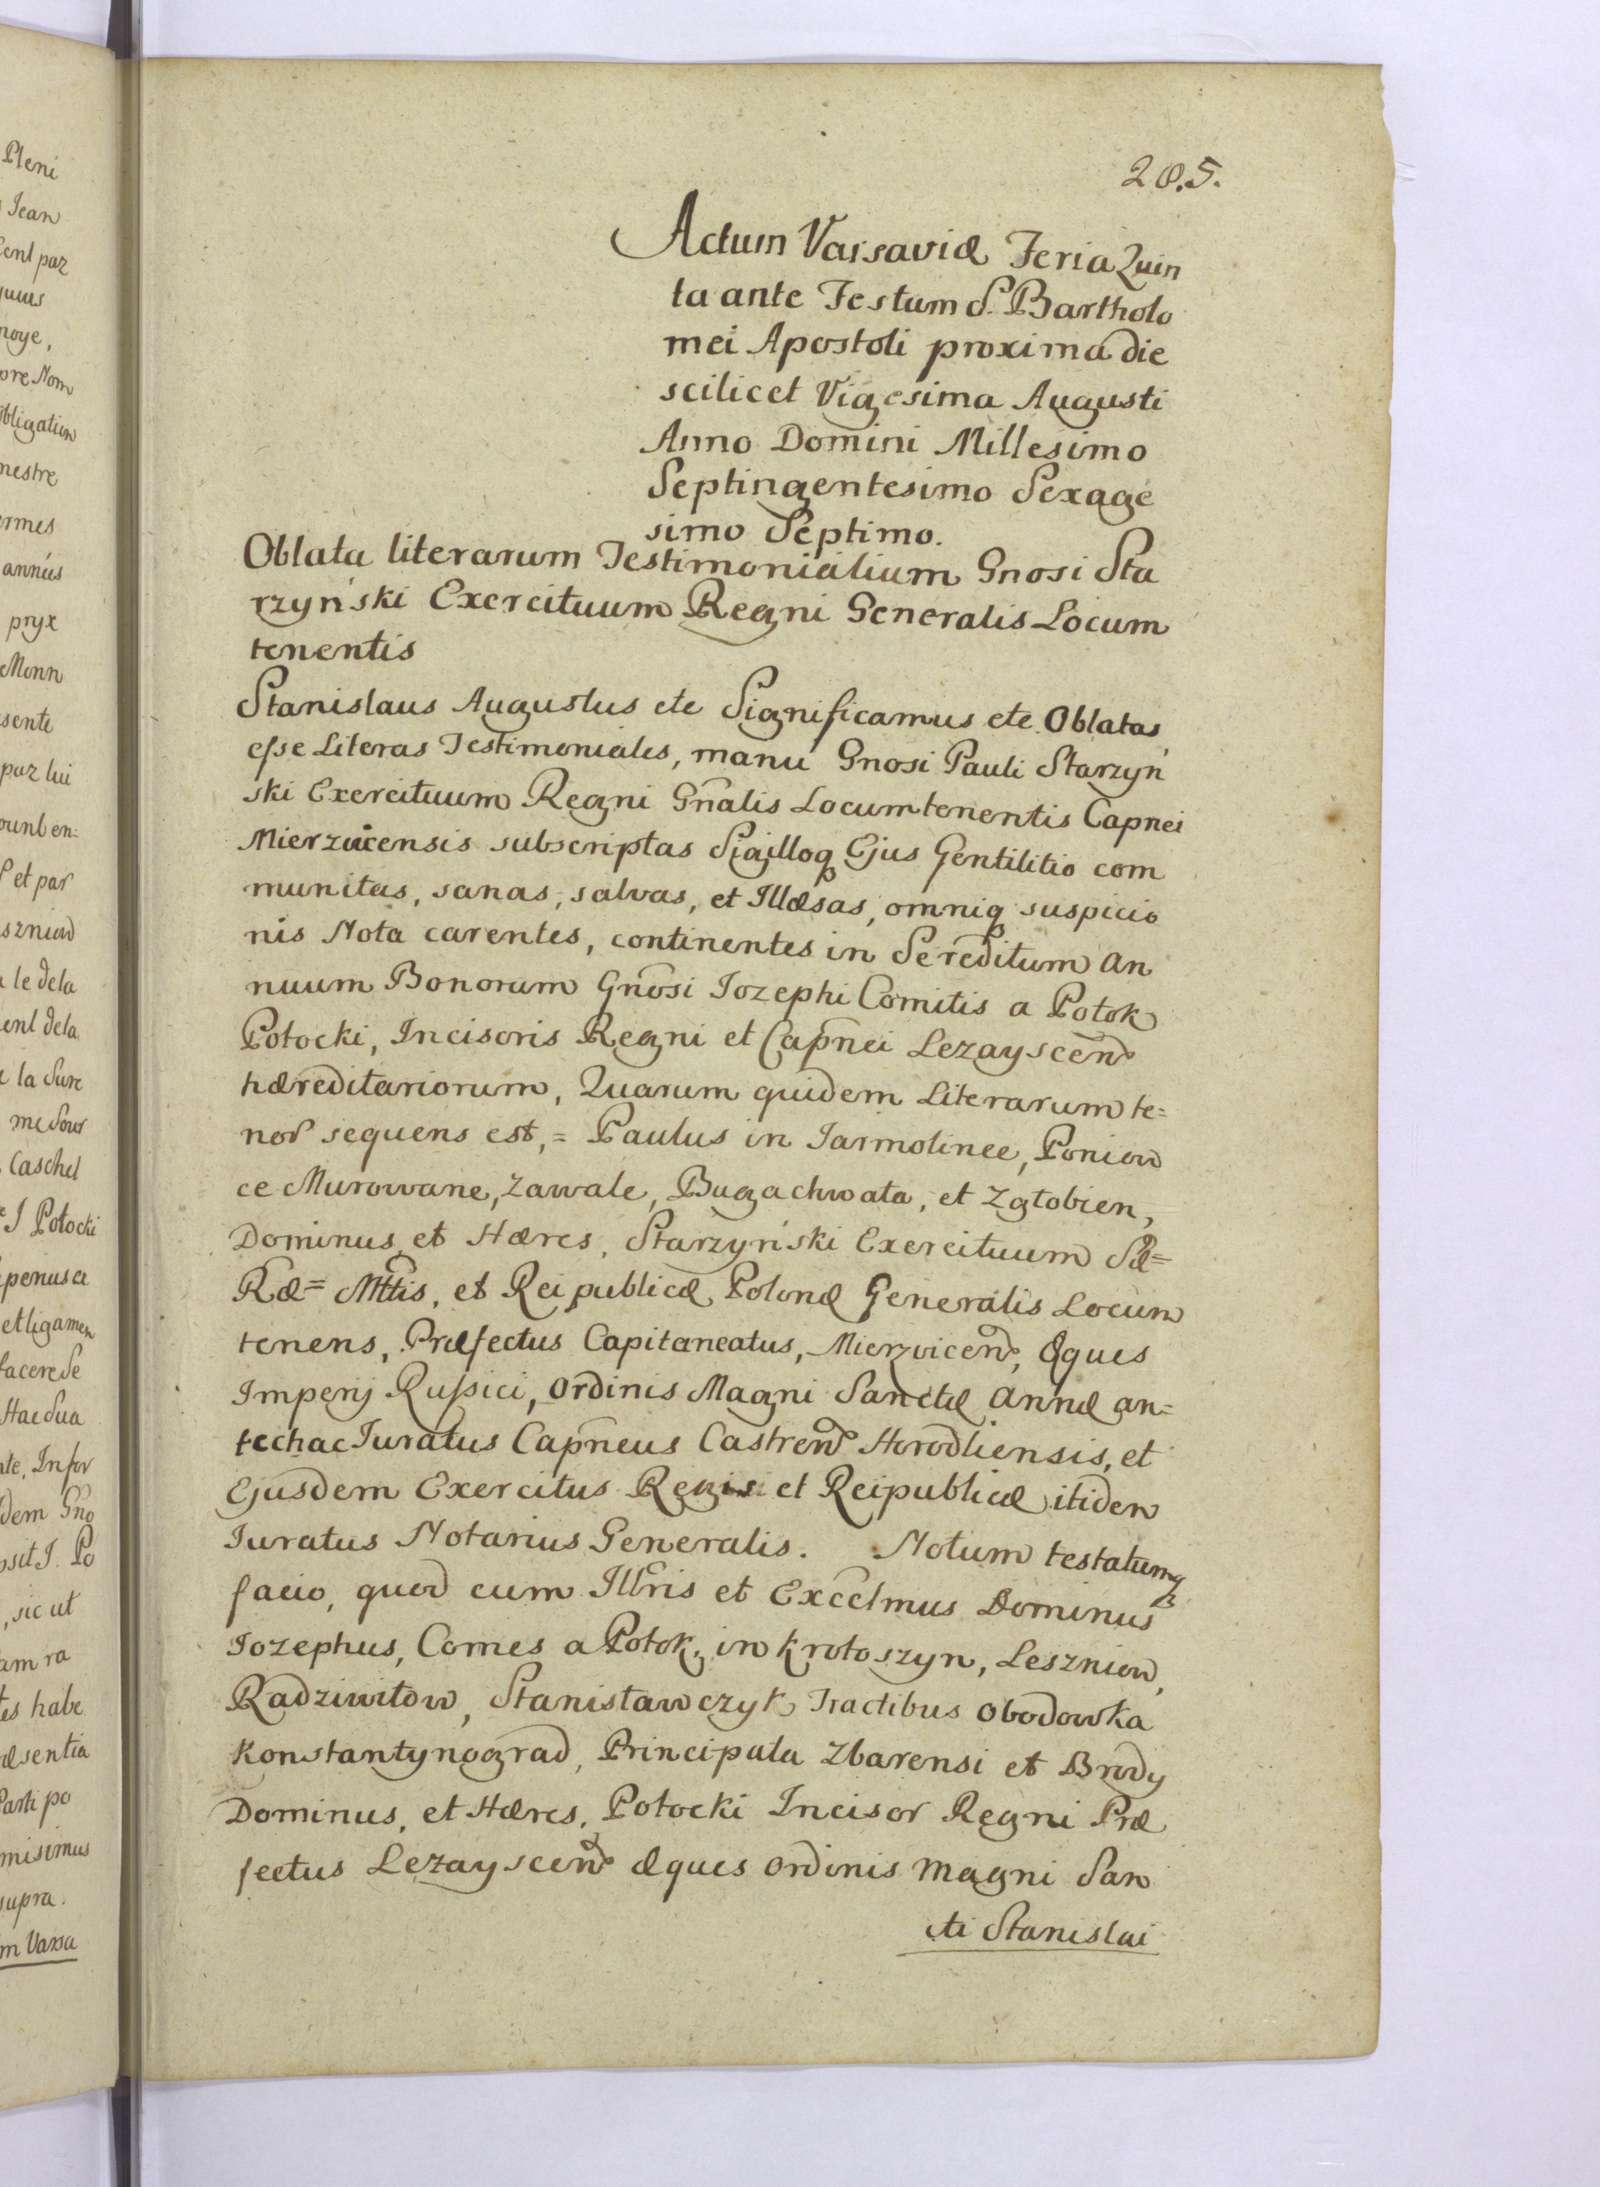 Pleni
Jean
Cent par
noye,
pre Nom
obligation
mestre
ermes
annús
pryx
Monn
sente
par lui
et par
szniow
a le dela
ent dela
la Sure
Caschel
J Potocki
et ligamen
facere Se
Hac Sua
nte, Infor
dem Gno
J. Po
, sic ut
am ra
tes habe
æsentia
Parti po
misimus
supra.
m Varsa
205.
Actum Varsaviæ Feria Quin
ta ante Festum S. Bartholo
mei Apostoli proxima die
scilicet Vigesima Augusti
Anno Domini Millesimo
Septingentesimo Sexage
simo Septimo.
Oblata literarum Testimonialium Gnosi Sta
rzyński Exercituum Regni Generalis Locum
tenentis
Stanislaus Augustus etc Significamus etc Oblatas
esse Literas Testimoniales, manu Gnosi Pauli Starzyń
ski Exercituum Regni Gnalis Locumtenentis Capnei
Mierzvicensis subscriptas Sigilloq Ejus Gentilitio com
munitas, sanas, salvas, et Illæsas, omniq suspicio
nis Nota carentes, continentes in Se reditum an
nuum Bonorum Gnosi Jozephi Comitis a Potok
Potocki, Incisoris Regni et Capnei Lezayscen
hæreditariorum, Quarum quidem Literarum te=
nor sequens est, = Paulus in Jarmolince, Poniow
ce Murowane, Zawale, Bugachwata, et Zgtobien,
Dominus et Hæres, Starzyński Exercituum Sæ=
Ræ= Mttis, et Reipublicæ Polonæ Generalis Locum
tenens, Præfectus Capitaneatus, Mierzvicen, Eques
Imperij Russici, Ordinis Magni Sanctæ Annæ an=
techac Juratus Capneus Castren Horodliensis, et
Ejusdem Exercitus Regis et Reipublicæ itidem
Juratus Notarius Generalis. Notum testatumq
facio, quod cum Illris et Excelmus Dominus
Jozephus, Comes a Potok, in Krotoszyn, Leszniow,
Radziwitow, Stanistawczyk Tractibus Obodowka
Konstantynograd, Principatu Zbarensi et Brody
Dominus, et Hæres, Potocki Incisor Regni Præ
fectus Lezayscen æques Ordinis Magni San
cti Stanislai